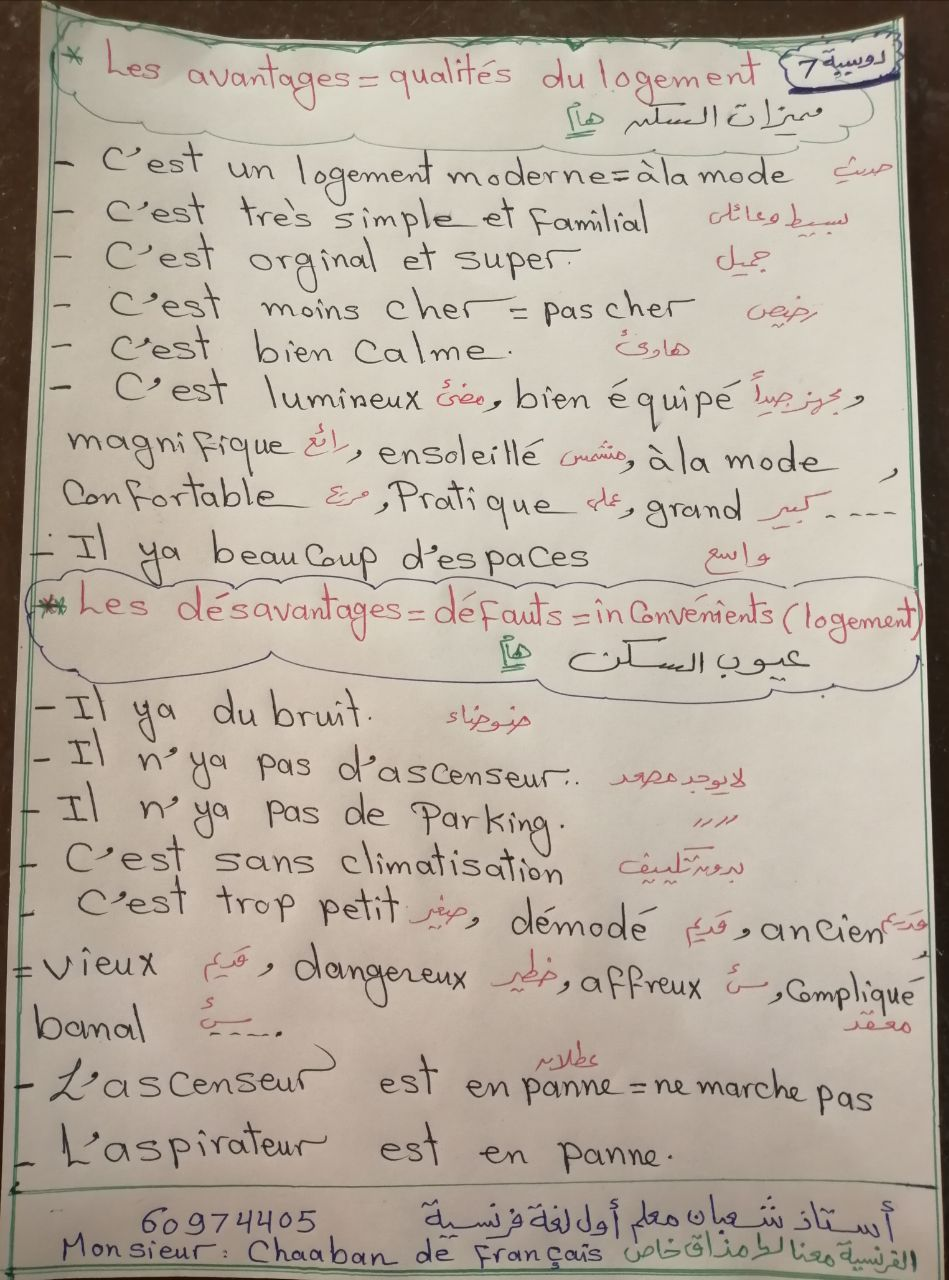 * Les avantages = qualités du logement دوسية 7
مميزات السكن هام
- C'est un logement moderne = à la mode حديث
- C'est très simple et familial بسيط وعائلى
- C'est orginal et super. جميل
- C'est moins cher = pas cher رخيص
- C'est bien calme. هادئ
- C'est lumineux مضئ, bien équipé مجهز جيداً,
magnifique رائع, ensoleillé مشمس, à la mode,
Confortable مريح, Pratique عملى, grand كبير ....
- Il ya beaucoup d'espaces واسع
** Les désavantages = défauts = inConvénients (logement)
عيوب السكن هام
- Il ya du bruit. ضوضاء
- Il n'ya pas d'ascenseur.. لا يوجد مصعد
- Il n'ya pas de Parking. 〃 〃
- C'est sans climatisation بدون تكييف
- C'est trop petit صغير, démodé قديم, ancien قديم,
= vieux قديم, dangereux خطير, affreux سئ, Compliqué معقد
banal سئ ....
- L'ascenseur est en panne عطلان = ne marche pas
- L'aspirateur est en panne.
أستاذ شعبان معلم أول لغة فرنسية 60974405
Monsieur : Chaaban de Français الفرنسية معنا لها مذاق خاص